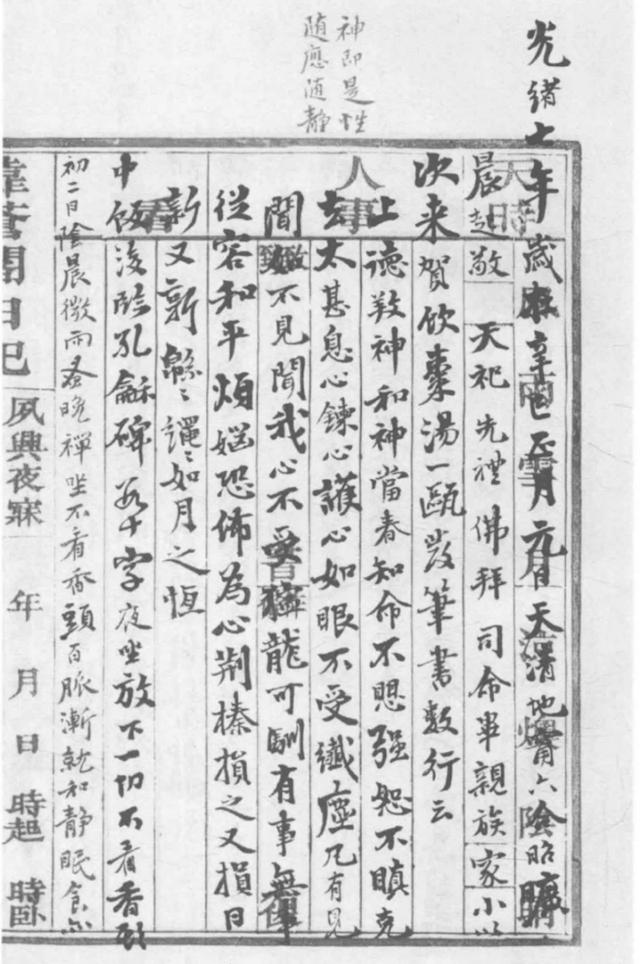 神即是性
随應随静
光緒七年歲在辛巳正月元日天清地甯六陰昭曠
晨起敬 天祀先禮佛拜 司命畢親族家小以
次来賀飲棗湯一甌發筆書數行云
上德敦神和神當春知命不愠强恕不瞋克
去太甚息心鍊心護心如眼不受纖塵凡有見
聞如不見聞我心不受獰龍可馴有事無事
從容和平煩惱恐怖為心荊榛損之又損日
新又新緜々繩々如月之恆
中飯後臨孔龢碑若干字夜坐放下一切不看香頭
初二日陰晨微雨蚤晚禪坐不看香頭百脈漸就和静眠食亦
夙興夜寐 年 月 日 時起 時卧